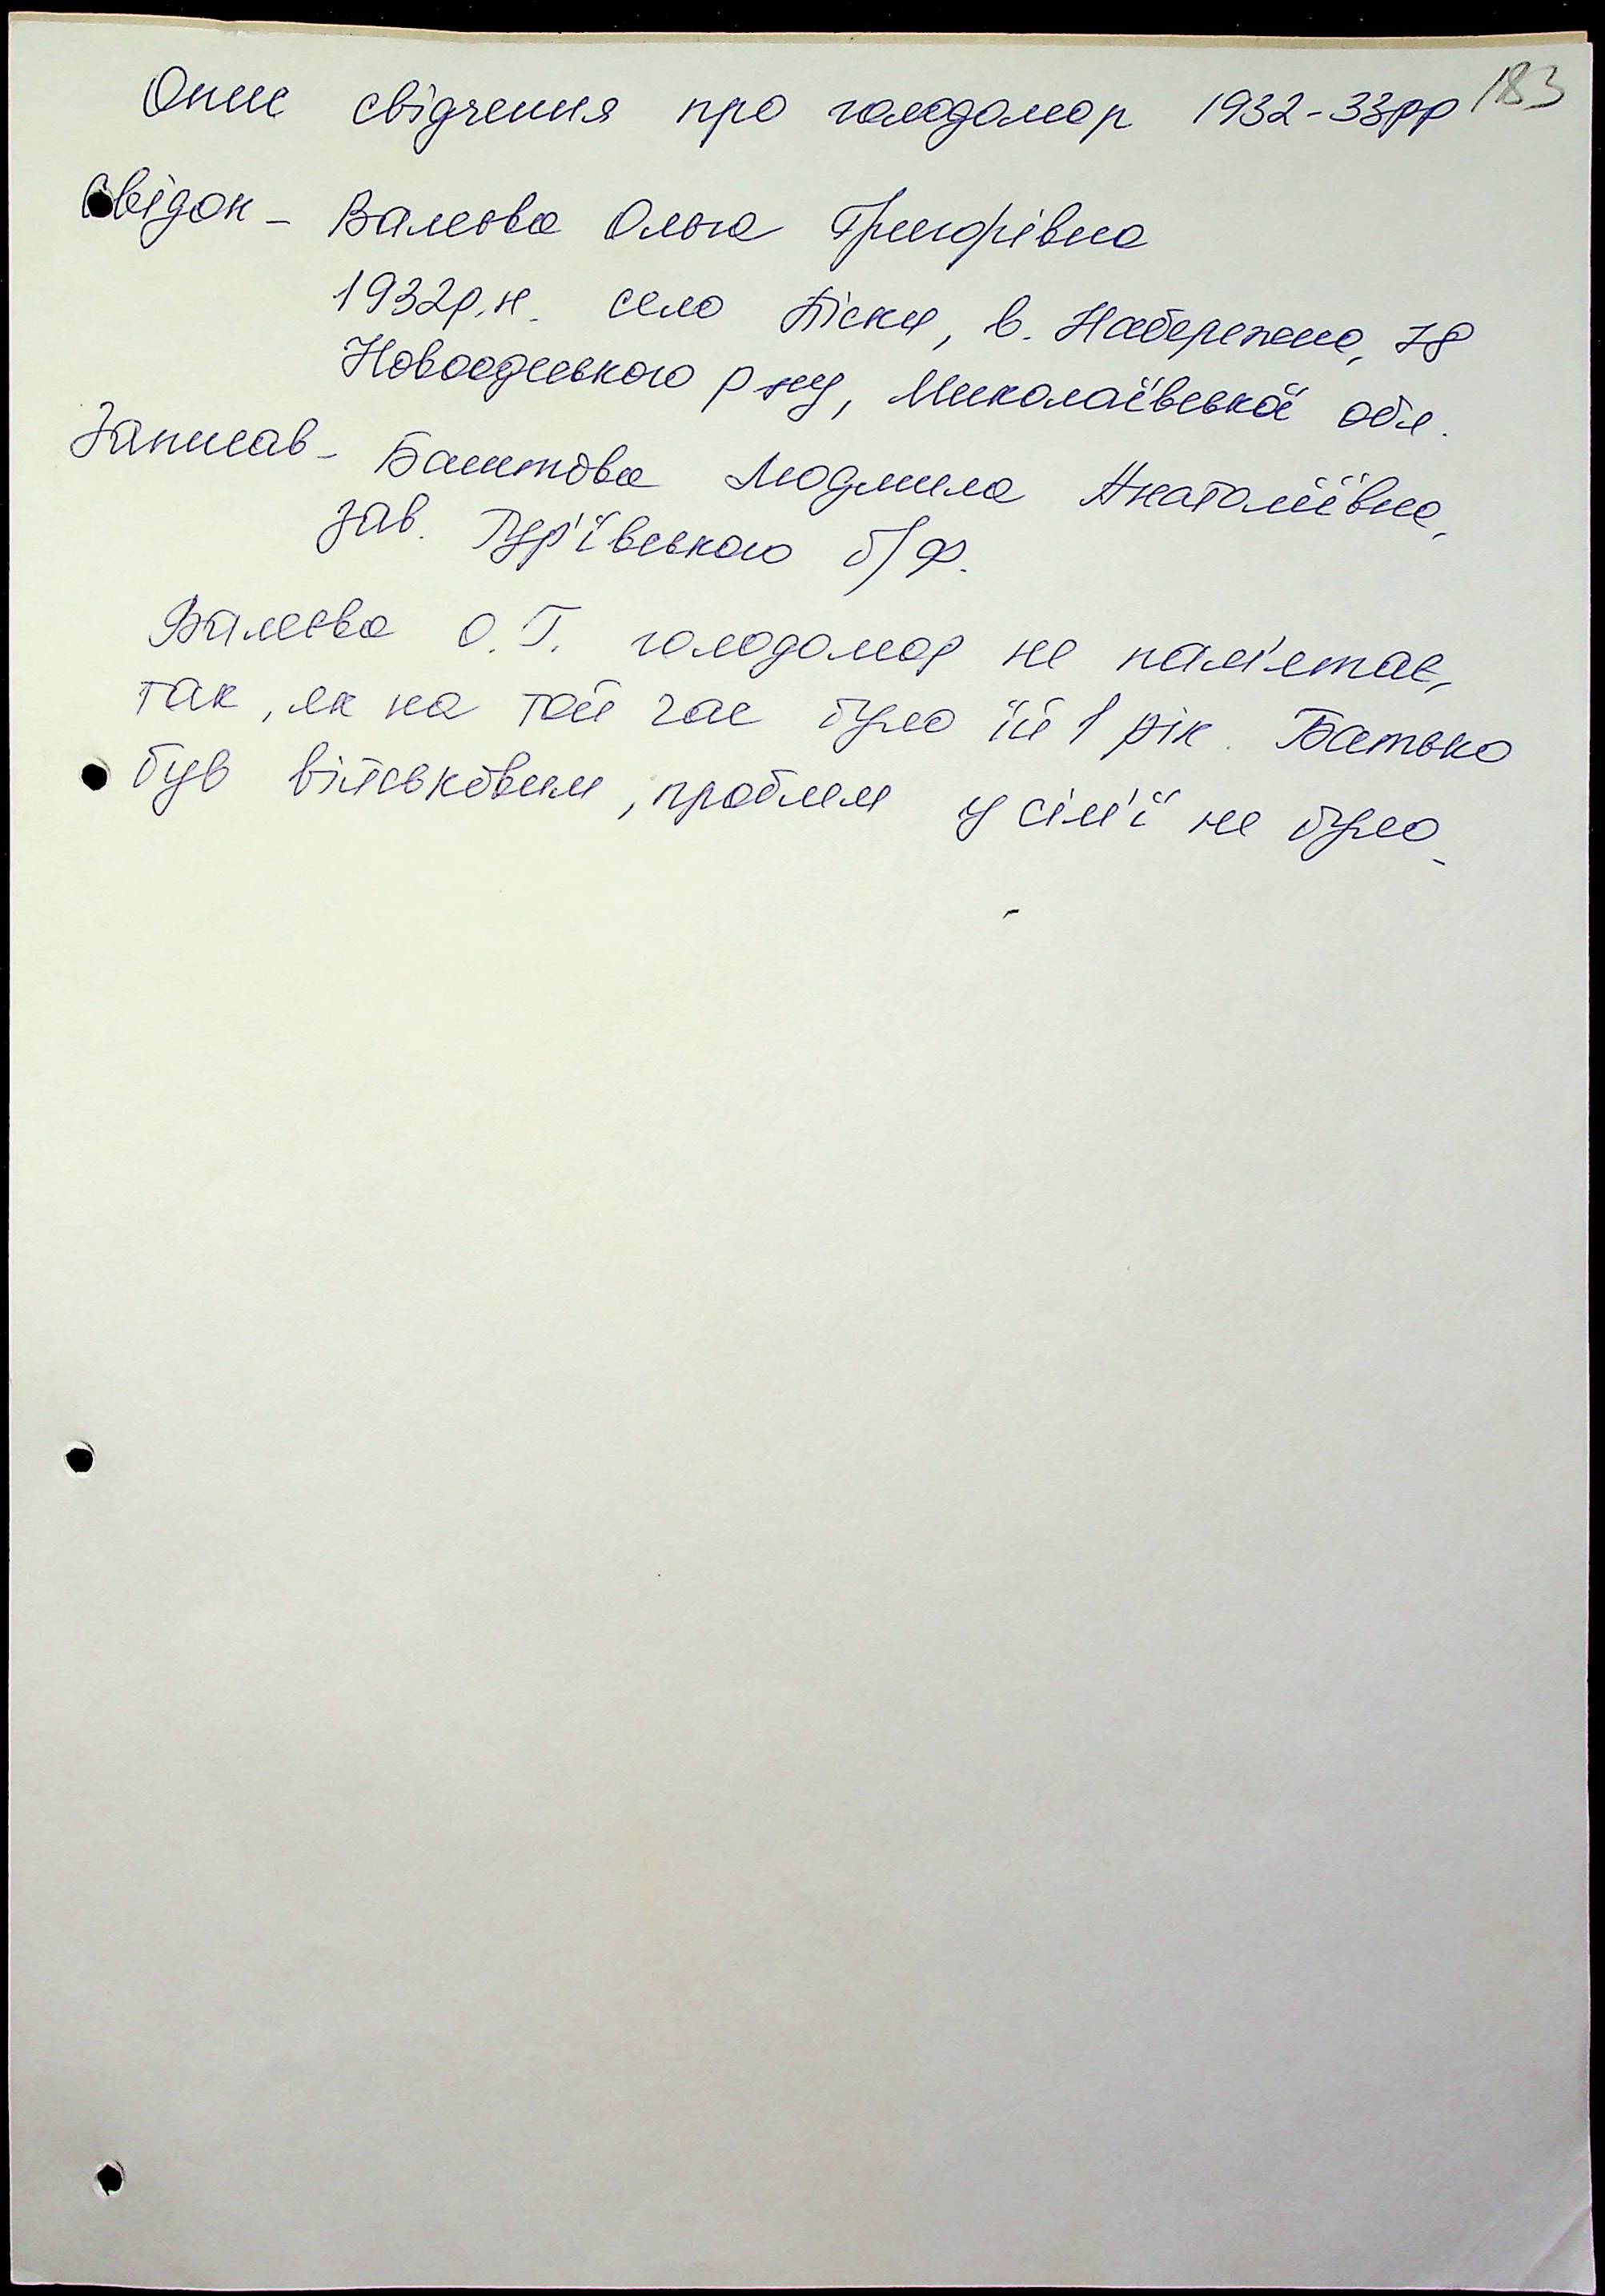 Опис свідчення про голодомор 1932-33рр 183
Свідок - Валєєва Ольга Григорівна
1932р.н. село Піски, в. Набережна, 78
Новоодеського р-ну, Миколаївської обл.
Записав - Баштова Людмила Анатоліївна,
зав. Гур'ївського б/ф.
Валєєва О.Г. голодомор не пам'ятає,
так, як на той час було їй 1 рік. Батько
був військовим, проблем у сім'ї не було.